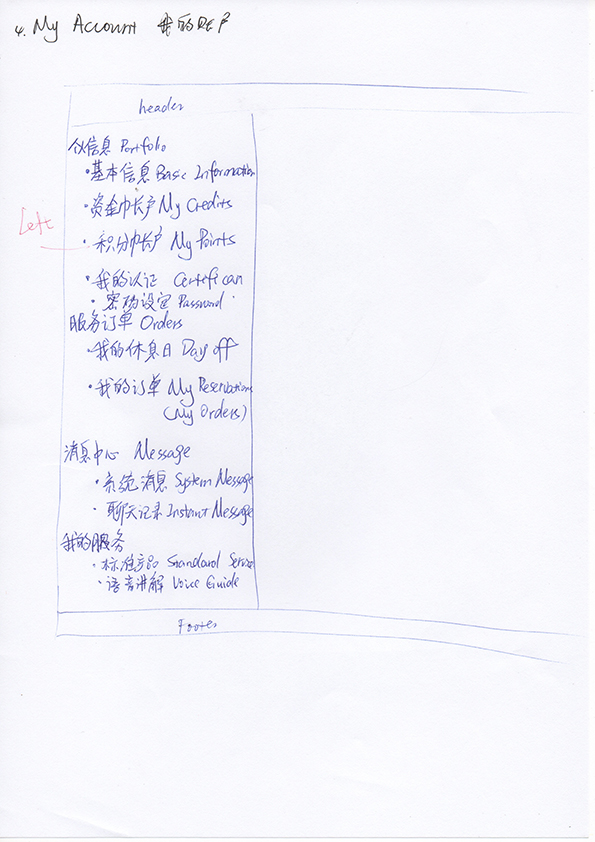 4. My Account 我的账户
header
信息 Portfolio
·基本信息 Basic Information
·资金帐户 My Credits
Left
·积分帐户 My Points
·我的认证
·密码设定 Password
服务订单 Orders
·我的休息日 Day off
·我的订单 My Reservations
(My Orders)
消息中心 Message
·系统消息 System Message
·聊天记录 Instant Message
我的服务
·标准产品 Standard Service
·语音讲解 Voice Guide
Footer